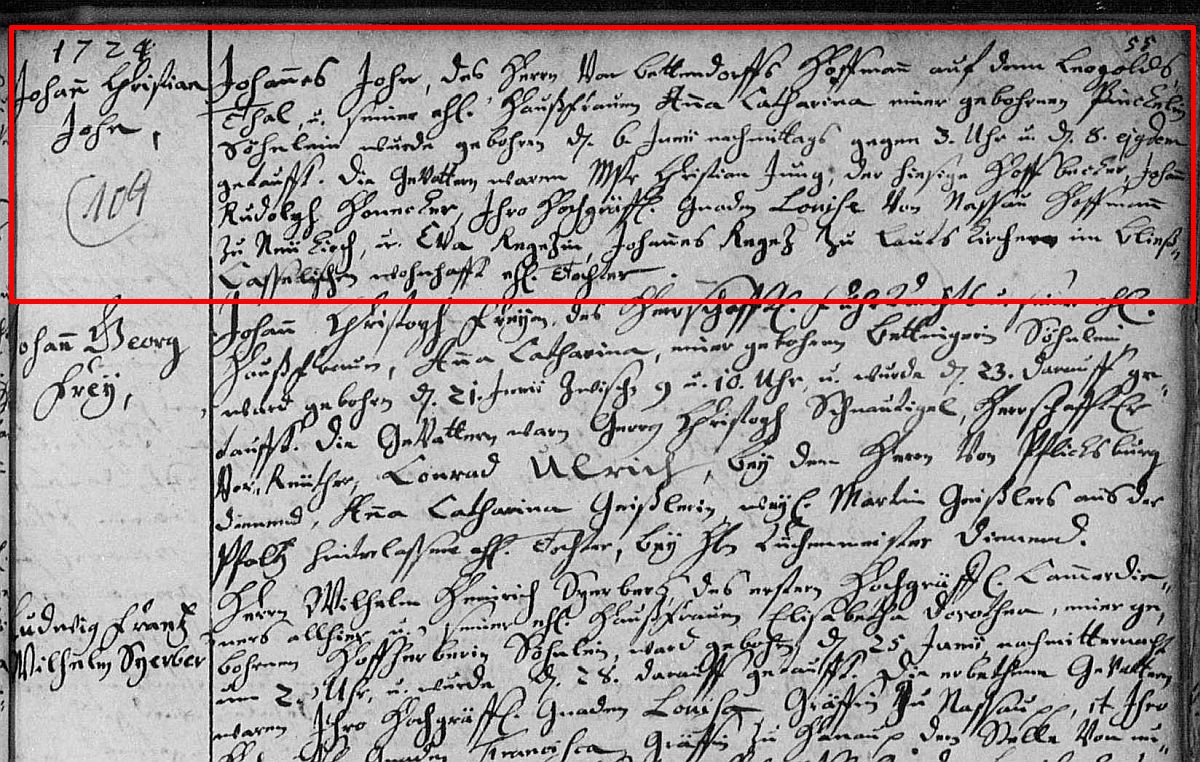 1724
55
Johann Christian
John,
(109)
Johannes John, des Herrn Von Bettendorffs Hoffmann auf dem Leopolds,
Thal, u. seiner ehl. Haußfrauen Anna Catharina einer gebohrnen
Söhnlein wurde gebohren d. 6. Junii nachmittags gegen 3. Uhr u. d. 8. ejusdem
getaufft. Die Gevattern waren Mstr Christian Jung, der hiesige Hoffbecker, Johann
Rudolph Honecker, Ihro Hochgräffl. Gnaden Louise Von Nassau Hoffmann
zu Neukirch, u. Eva Johannes zu Lautskirchen im Bließ-
Casselischen wohnhafft ehl. Tochter.
Johann Georg
Frey,
Johann Christoph Freyen, des Herrschafftl. u. seiner ehl.
Haußfrauen, Anna Catharina, einer gebohrnen Söhnlein,
ward gebohren d. 21. Junii zwisch. 9 u. 10. Uhr, u. wurde d. 23. darauff ge-
taufft. Die Gevattern warn Christoph Herrschafftl.
Vor-Reuther, Conrad Ulrich, bey dem Herrn Von
dienend, Anna Catharina Geißlerin, weyl. Martin Geißlers aus der
Pfaltz hinterlassene ehl. Tochter, bey Hn Küchenmeister dienend.
Ludwig Frantz
Wilhelm Syerber
Herrn Wilhelm Heinrich Syerbers, des ersten Hochgräffl. Cammerdie-
ners allhier, u. seiner ehl. Haußfrauen Elisabetha Dorothea, einer ge-
bohrnen Söhnlein, ward gebohren d. 25 Junii, nachmitternacht
um 2. Uhr, u. wurde d. 28. darauff getaufft. Die erbethene Gevattern
waren Ihro Hochgräffl. Gnaden Louisa Gräffin zu Nassau, it. Ihro
Gnaden Francisca Gräffin zu Hanau, dero Stelle Von